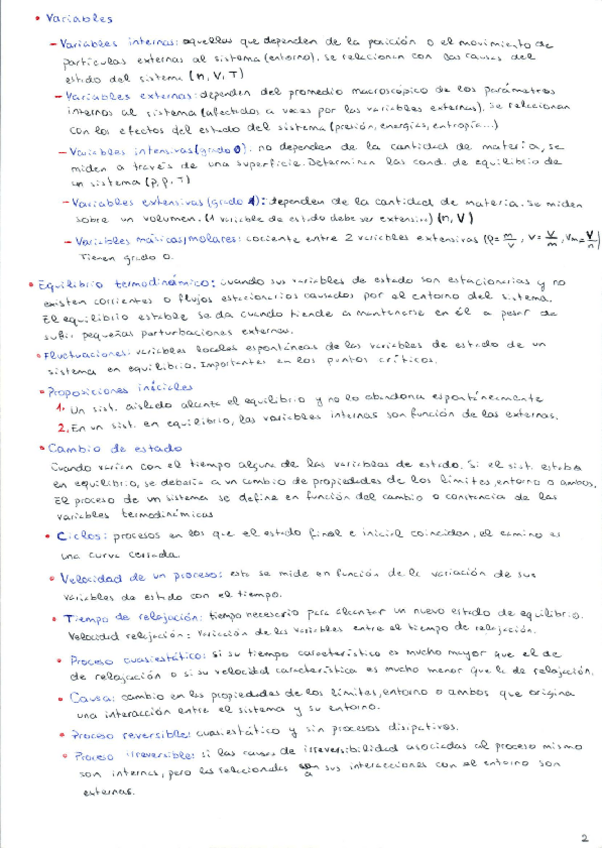 • Variables
– Variables internas: aquellas que dependen de la posición o el movimiento de
partículas externas al sistema (entorno). Se relacionan con las causas del
estado del sistema (n, V, T)
– Variables externas: dependen del promedio macroscópico de los parámetros
internos al sistema (afectados a veces por las variables externas). Se relacionan
con los efectos del estado del sistema (presión, energías, entropía...)
– Variables intensivas (grado 0): no dependen de la cantidad de materia, se
miden a través de una superficie. Determinan las cond. de equilibrio de
un sistema (p, ρ, T)
– Variables extensivas (grado 1): dependen de la cantidad de materia. Se miden
sobre un volumen. (1 variable de estado debe ser extensi...) (n, V)
– Variables másicas/molares: cociente entre 2 variables extensivas (ρ = m/V, v = V/m, Vm = V/n)
Tienen grado 0.
• Equilibrio termodinámico: cuando sus variables de estado son estacionarias y no
existen corrientes o flujos estacionarios causados por el entorno del sistema.
El equilibrio estable se da cuando tiende a mantenerse en él a pesar de
sufrir pequeñas perturbaciones externas.
• Fluctuaciones: variables locales espontáneas de las variables de estado de un
sistema en equilibrio. Importantes en los puntos críticos.
• Proposiciones iniciales
1. Un sist. aislado alcanza el equilibrio y no lo abandona espontáneamente
2. En un sist. en equilibrio, las variables internas son función de las externas.
• Cambio de estado
Cuando varían con el tiempo alguna de las variables de estado. Si el sist. estaba
en equilibrio, se debería a un cambio de propiedades de los límites, entorno o ambos.
El proceso de un sistema se define en función del cambio o constancia de las
variables termodinámicas
• Ciclos: procesos en los que el estado final e inicial coinciden, el camino es
una curva cerrada
• Velocidad de un proceso: esta se mide en función de la variación de sus
variables de estado con el tiempo.
• Tiempo de relajación: tiempo necesario para alcanzar un nuevo estado de equilibrio.
Velocidad relajación: variación de las variables entre el tiempo de relajación.
• Proceso cuasiestático: si su tiempo característico es mucho mayor que el de
de relajación o si su velocidad característica es mucho menor que la de relajación.
• Causa: cambio en las propiedades de los límites, entorno o ambos que origina
una interacción entre el sistema y su entorno.
• Proceso reversible: cuasiestático y sin procesos disipativos.
• Proceso irreversible: si las causas de irreversibilidad asociadas al proceso mismo
son internas, pero las relacionadas a sus interacciones con el entorno son
externas.
2